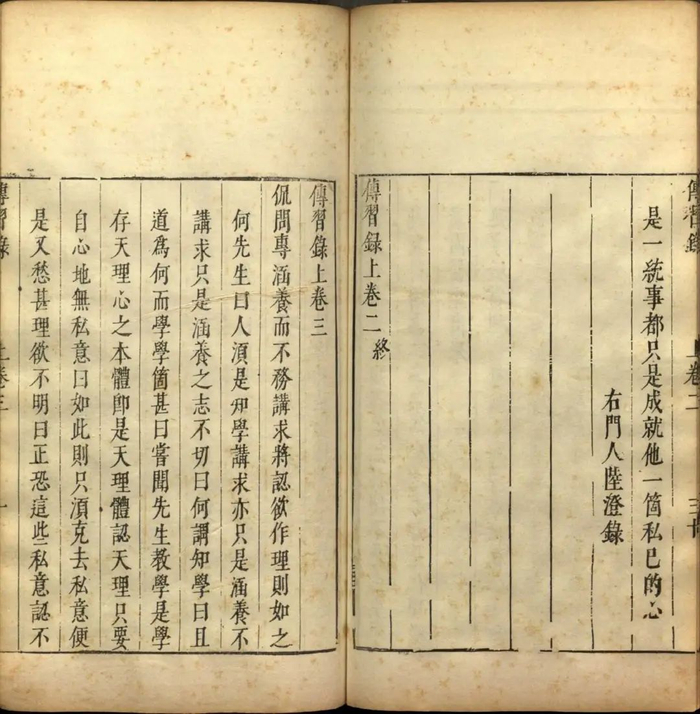 傳習錄 上卷二
是一統事都只是成就他一箇私己的心
右門人陸澄錄
傳習録上卷二終
傳習錄上卷三
侃問專涵養而不務講求將認欲作理則如之
何先生曰人湏是知學講求亦只是涵養不
講求只是涵養之志不切曰何謂知學曰且
道爲何而學學箇甚曰嘗聞先生教學是學
存天理心之本體卽是天理體認天理只要
自心地無私意曰如此則只湏克去私意便
是又愁甚理欲不明曰正恐這些私意認不
傳習錄 上卷三 一